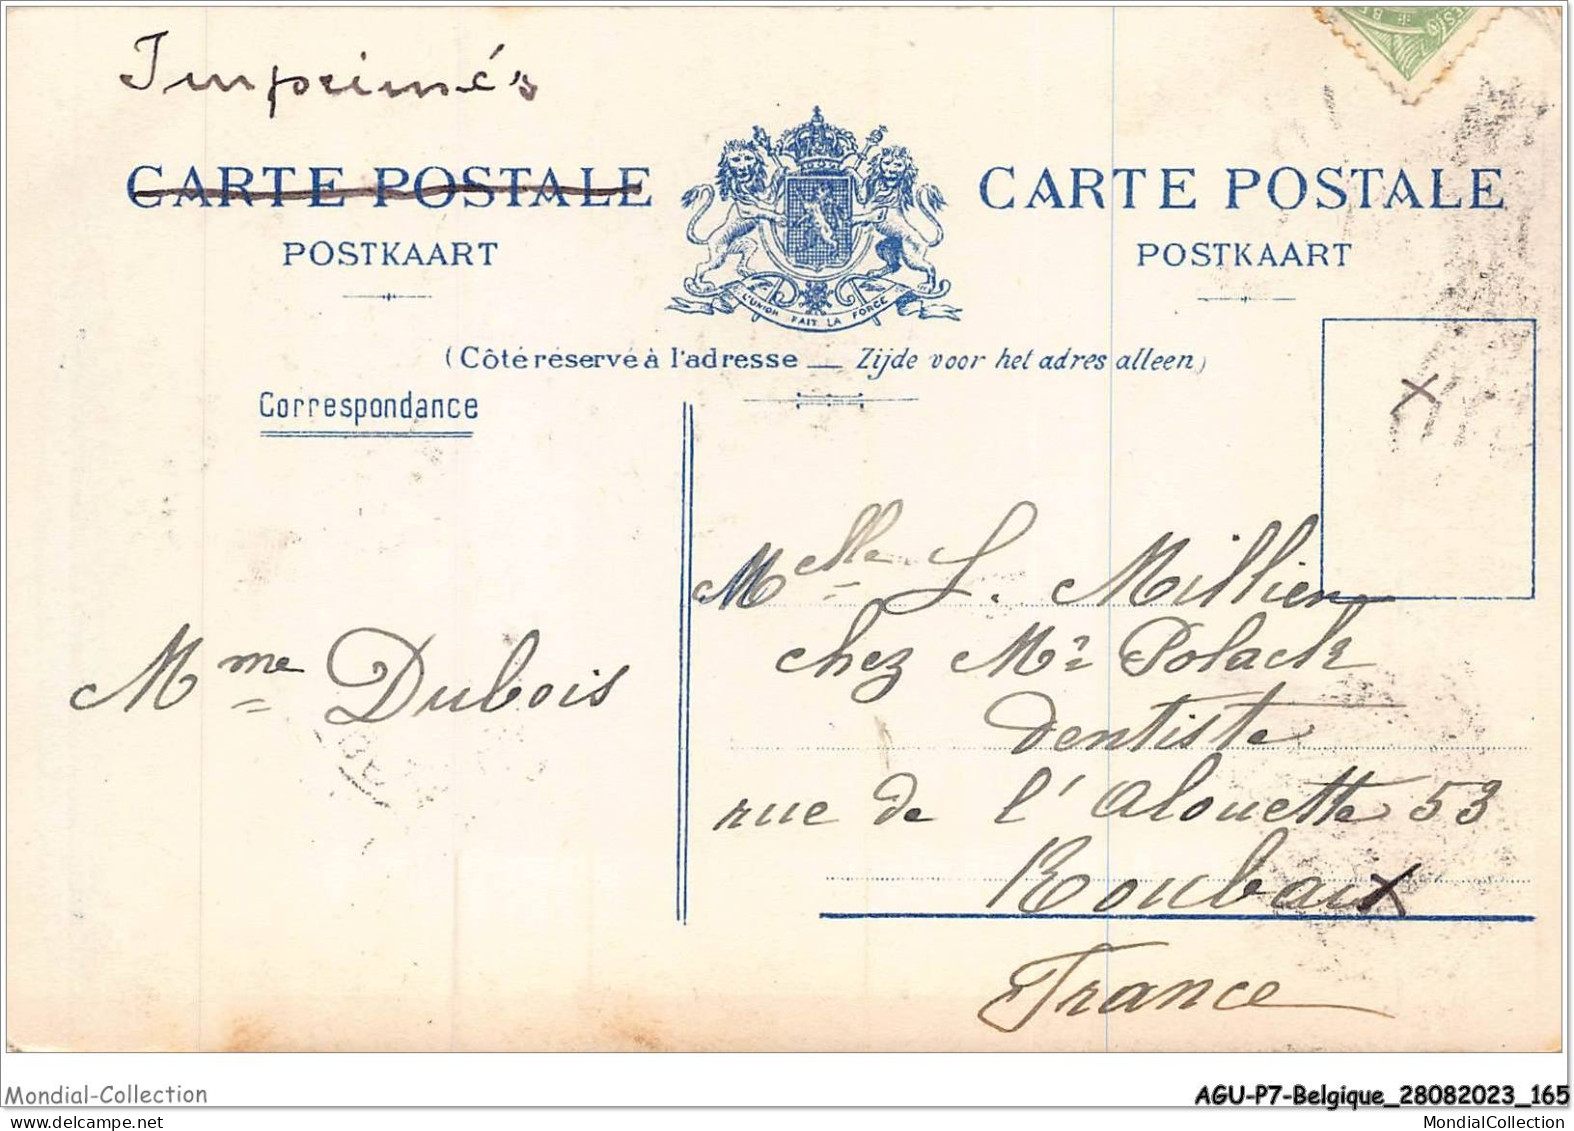 Imprimés
CARTE POSTALE
POSTKAART
CARTE POSTALE
POSTKAART
L'UNION FAIT LA FORCE
(Côté réservé à l'adresse — Zijde voor het adres alleen)
Correspondance
Mme Dubois
Melle L. Millien
chez Mr Polack
dentiste
rue de l'Alouette 53
Roubaix
France
Mondial-Collection
AGU-P7-Belgique_28082023_165
MondialCollection
MondialCollection.com